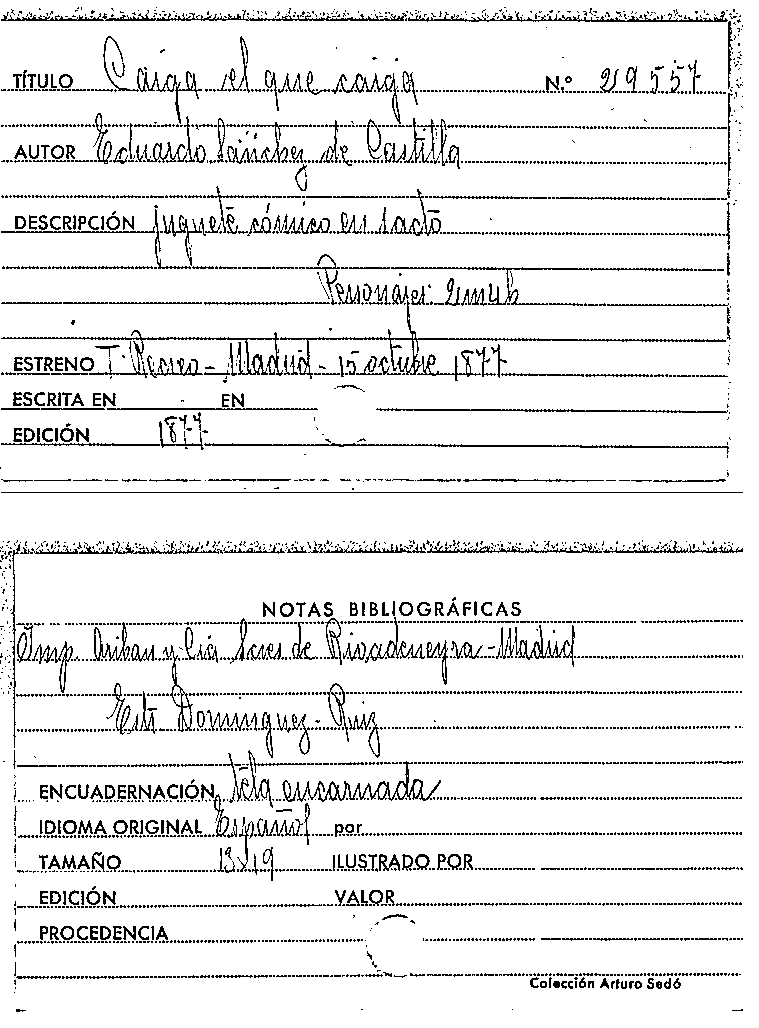 TÍTULO Caiga el que caiga N.º 29557
AUTOR Eduardo Sánchez de Castilla
DESCRIPCIÓN juguete cómico en 1 acto
Personajes: 2 m 4 h
ESTRENO T. Recreo - Madrid - 15 octubre 1877
ESCRITA EN EN
EDICIÓN 1877
NOTAS BIBLIOGRÁFICAS
Imp. Aribau y Cia Sces de Rivadeneyra - Madrid
Edit Dominguez - Ruiz
ENCUADERNACIÓN tela encarnada
IDIOMA ORIGINAL Español por
TAMAÑO 13x19 ILUSTRADO POR
EDICIÓN VALOR
PROCEDENCIA
Colección Arturo Sedó